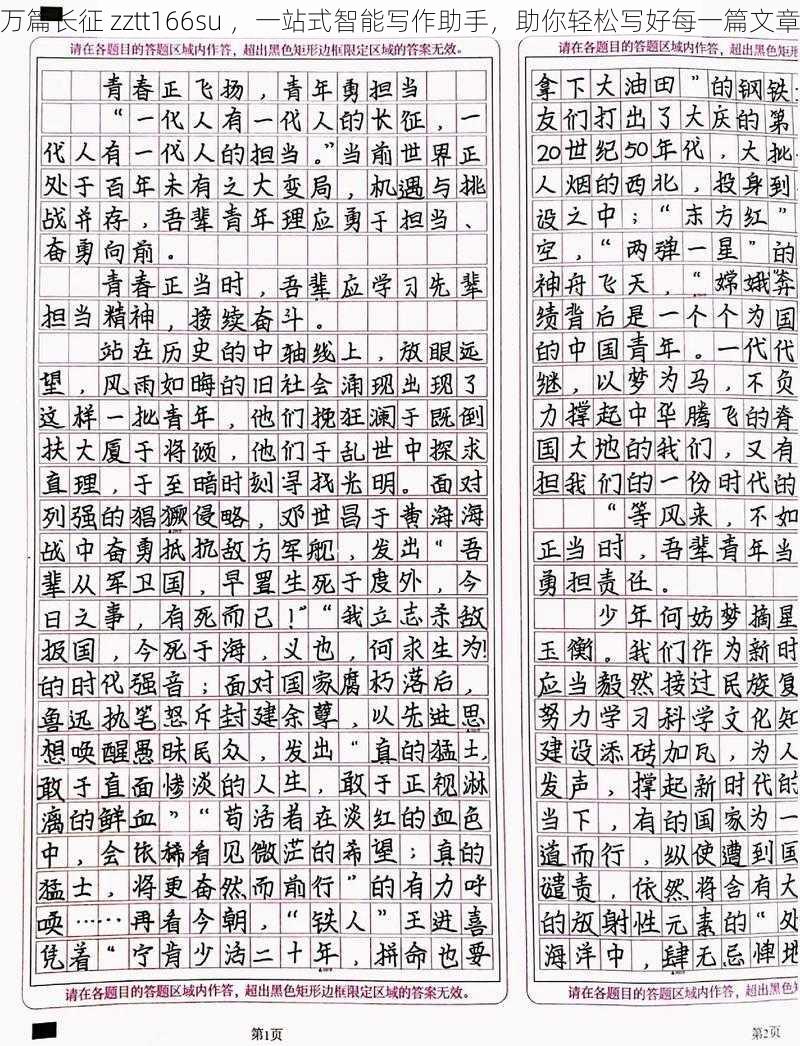 万篇长征 zztt166su ，一站式智能写作助手，助你轻松写好每一篇文章
请在各题目的答题区域内作答，超出黑色矩形边框限定区域的答案无效。
青春正飞扬，青年勇担当
“一代人有一代人的长征，一
代人有一代人的担当。”当前世界正
处于百年未有之大变局，机遇与挑
战并存，吾辈青年理应勇于担当、
奋勇向前。
青春正当时，吾辈应学习先辈
担当精神，接续奋斗。
站在历史的中轴线上，放眼远
望，风雨如晦的旧社会涌现出现了
这样一批青年，他们挽狂澜于既倒
扶大厦于将倾，他们于乱世中探求
真理，于至暗时刻寻找光明。面对
列强的猖獗侵略，邓世昌于黄海海
战中奋勇抵抗敌方军舰，发出“吾
辈从军卫国，早置生死于度外，今
日之事，有死而已！”“我立志杀敌
报国，今死于海，义也，何求生为！
的时代强音；面对国家腐朽落后，
鲁迅执笔怒斥封建余孽，以先进思
想唤醒愚昧民众，发出“真的猛士，
敢于直面惨淡的人生，敢于正视淋
漓的鲜血”“苟活者在淡红的血色
中，会依稀看见微茫的希望；真的
猛士，将更奋然而前行”的有力呼
唤……再看今朝，“铁人”王进喜
凭着“宁肯少活二十年，拼命也要
请在各题目的答题区域内作答，超出黑色矩形边框限定区域的答案无效。
第1页
请在各题目的答题区域内作答，超出黑色矩形
拿下大油田”的钢铁
友们打出了大庆的第
20世纪50年代，大批
人烟的西北，投身到
设之中；“东方红”
空，“两弹一星”的
神舟飞天，“嫦娥奔
绩背后是一个个为国
的中国青年。一代代
继，以梦为马，不负
力撑起中华腾飞的脊
国大地的我们，又有
担我们的一份时代的
“等风来，不如
正当时，吾辈青年当
勇担责任。
少年何妨梦摘星
玉衡。我们作为新时
应当毅然接过民族复
努力学习科学文化知
建设添砖加瓦，为人
发声，撑起新时代的
当下，有的国家为一
道而行，纵使遭到国
谴责，依然将含有大
的放射性元素的“处
海洋中，肆无忌惮地
请在各题目的答题区域内作答，超出黑色
第2页